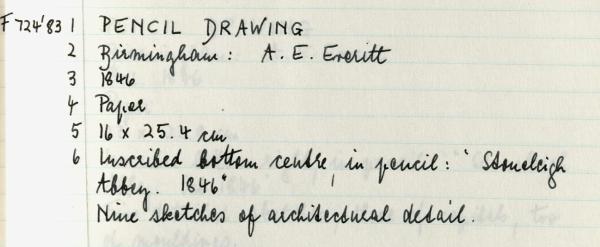 F724'83 1 PENCIL DRAWING
2 Birmingham: A. E. Everitt
3 1846
4 Paper
5 16 x 25.4 cm
6 Inscribed bottom centre, in pencil: "Stoneleigh
Abbey. 1846"
Nine sketches of architectural detail.